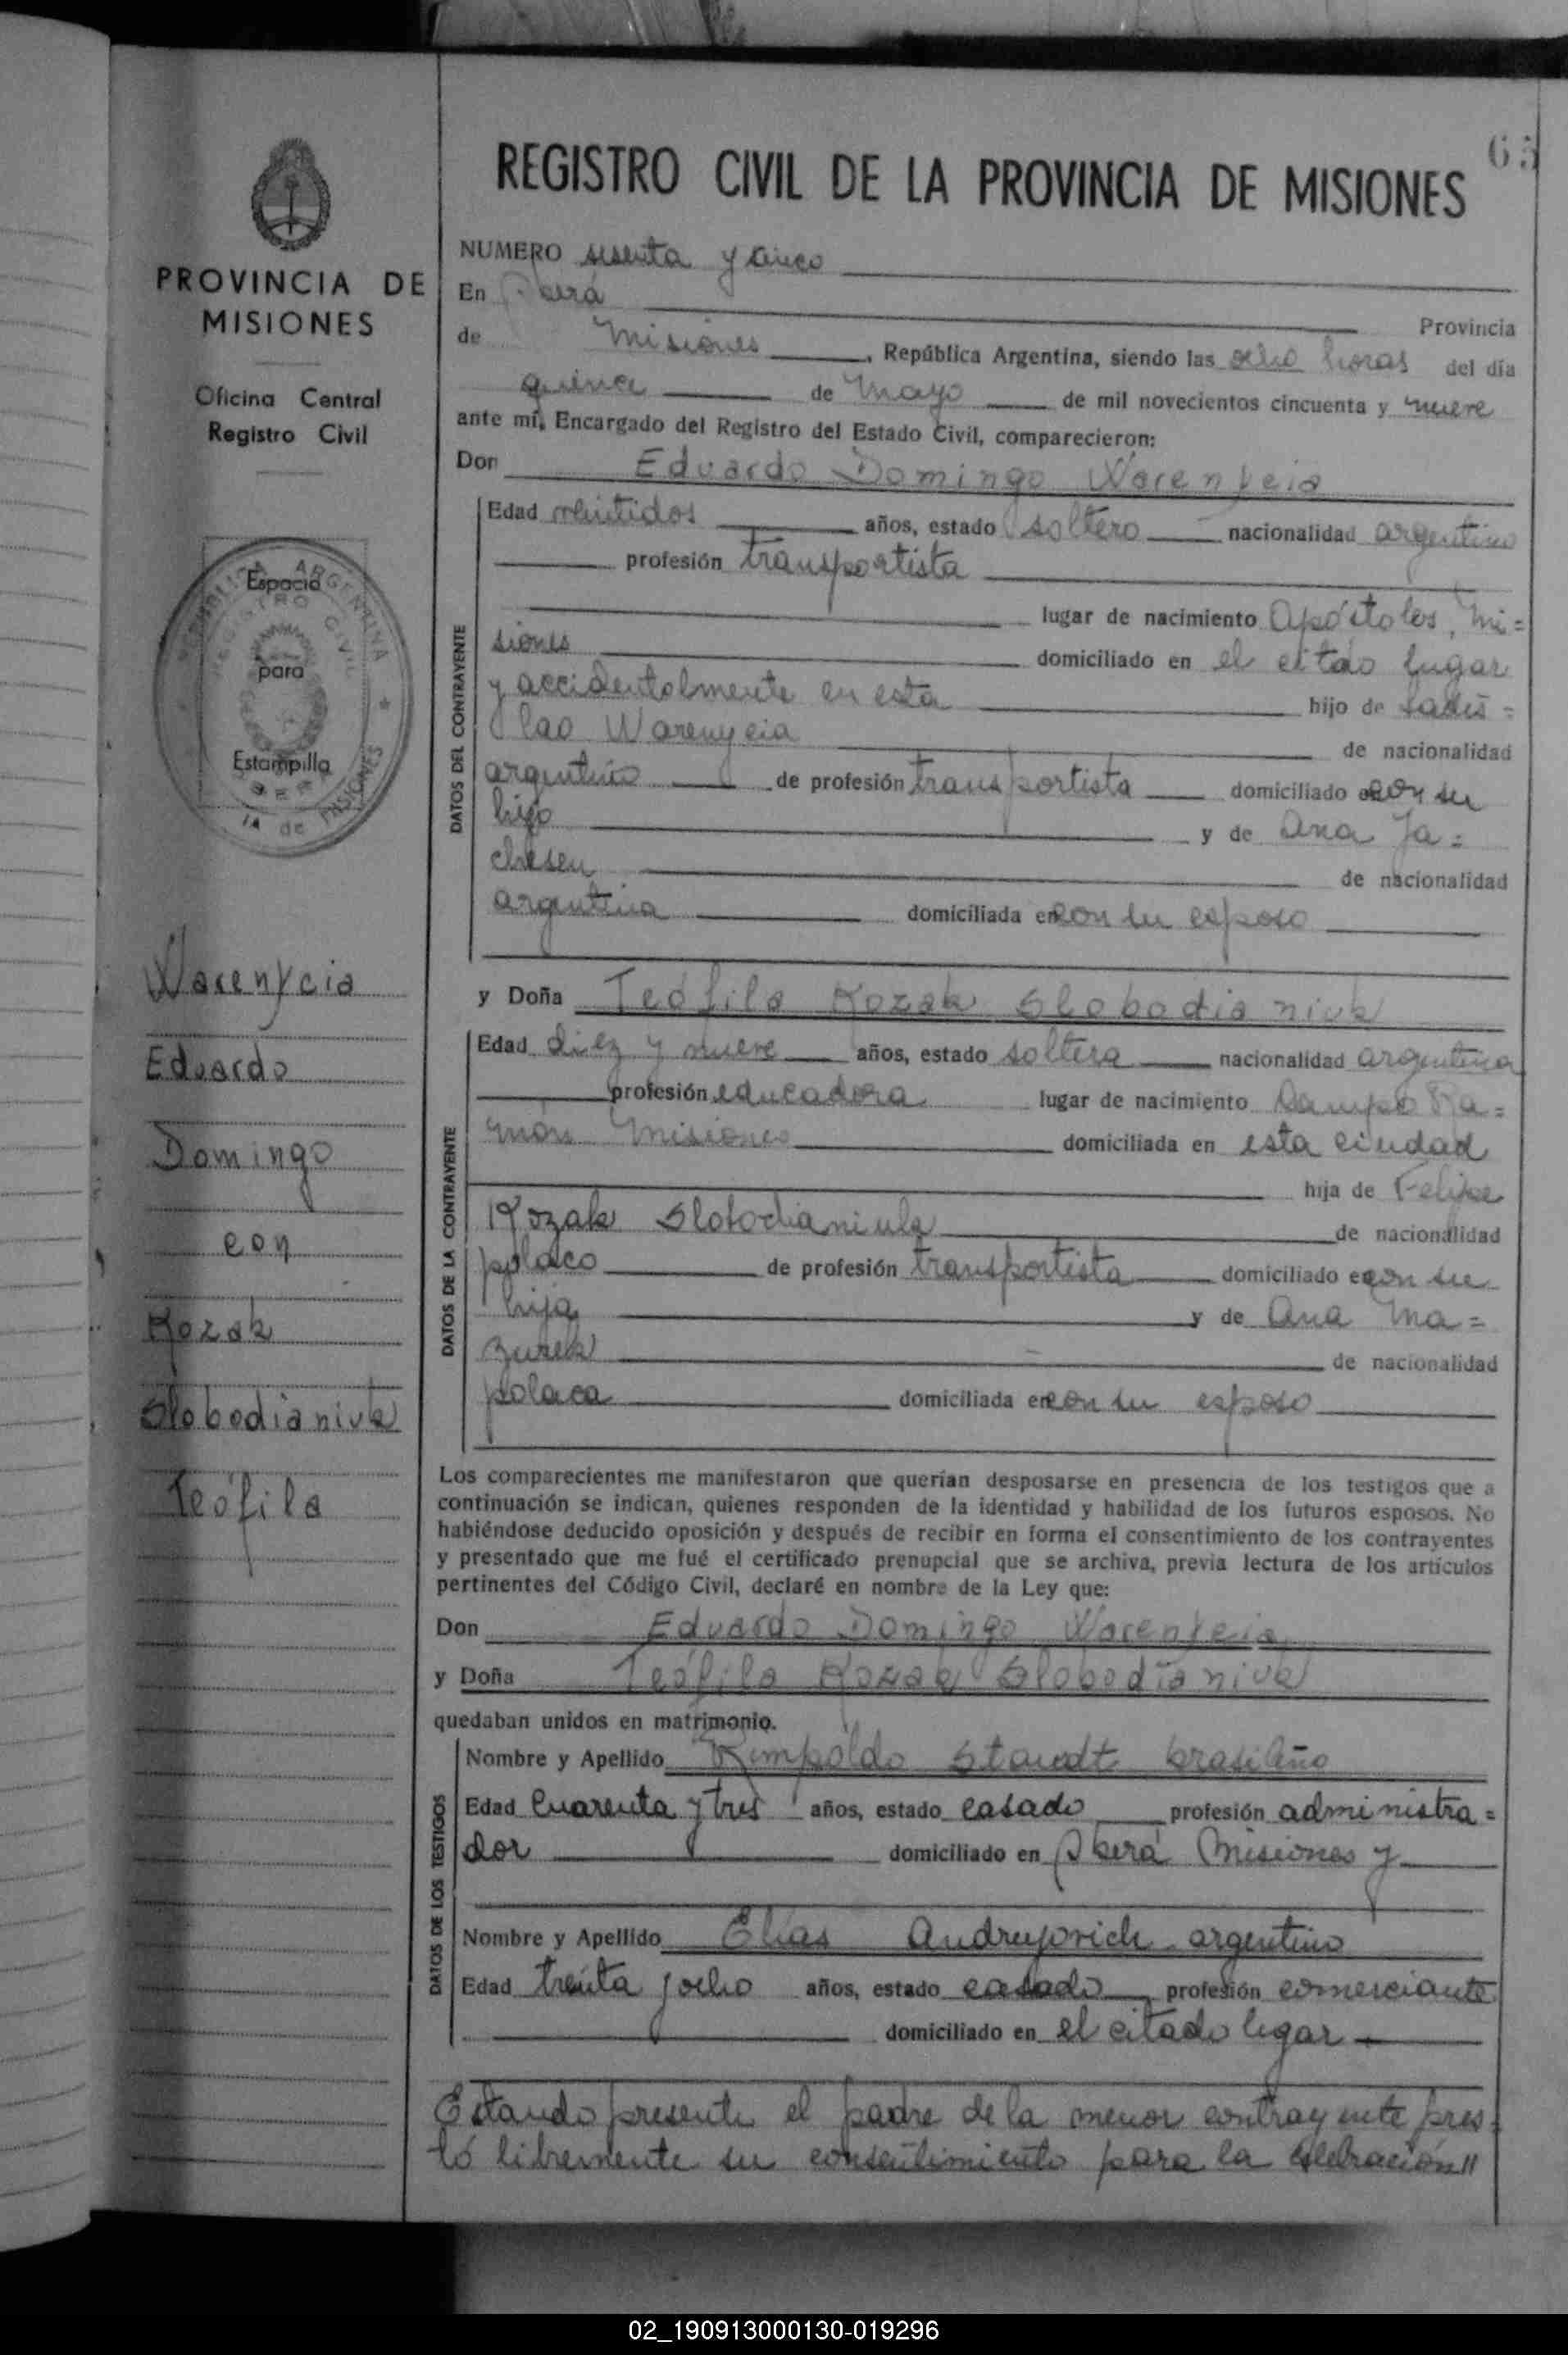 65
REGISTRO CIVIL DE LA PROVINCIA DE MISIONES
PROVINCIA DE
MISIONES
Oficina Central
Registro Civil
Espacio
para
Estampilla
Warenycia
Eduardo
Domingo
con
Kozak
Slobodianiuk
Teófila
NUMERO sesenta y cinco
En
Provincia
de Misiones, República Argentina, siendo las ocho horas del día
quince de Mayo de mil novecientos cincuenta y nueve
ante mí, Encargado del Registro del Estado Civil, comparecieron:
Don Eduardo Domingo Warenycia
DATOS DEL CONTRAYENTE
Edad veintidos años, estado soltero nacionalidad argentino
profesión transportista
lugar de nacimiento Apóstoles, Mi=
siones domiciliado en el citado lugar
y accidentalmente en esta hijo de Ladis=
lao Warenycia de nacionalidad
argentino de profesión transportista domiciliado con su
hijo y de Ana Ja=
de nacionalidad
argentina domiciliada en con su esposo
y Doña Teófila Kozak Slobodianiuk
DATOS DE LA CONTRAYENTE
Edad diez y nueve años, estado soltera nacionalidad argentina
profesión educadora lugar de nacimiento Campo Ra=
món Misiones domiciliada en esta ciudad
hija de Felipe
Kozak Slobodianiuk de nacionalidad
polaco de profesión transportista domiciliado con su
hija y de Ana Ma=
zurek de nacionalidad
polaca domiciliada en con su esposo
Los comparecientes me manifestaron que querían desposarse en presencia de los testigos que a
continuación se indican, quienes responden de la identidad y habilidad de los futuros esposos. No
habiéndose deducido oposición y después de recibir en forma el consentimiento de los contrayentes
y presentado que me fué el certificado prenupcial que se archiva, previa lectura de los artículos
pertinentes del Código Civil, declaré en nombre de la Ley que:
Don Eduardo Domingo Warenycia
y Doña Teófila Kozak Slobodianiuk
quedaban unidos en matrimonio.
DATOS DE LOS TESTIGOS
Nombre y Apellido Rimpoldo Staudt brasileño
Edad Cuarenta y tres años, estado casado profesión administra=
dor domiciliado en Oberá Misiones y
Nombre y Apellido Elías Andrujovich argentino
Edad treinta y ocho años, estado casado profesión comerciante
domiciliado en el citado lugar
Estando presente el padre de la menor contrayente pres=
tó libremente su consentimiento para la celebración"
02_190913000130-019296